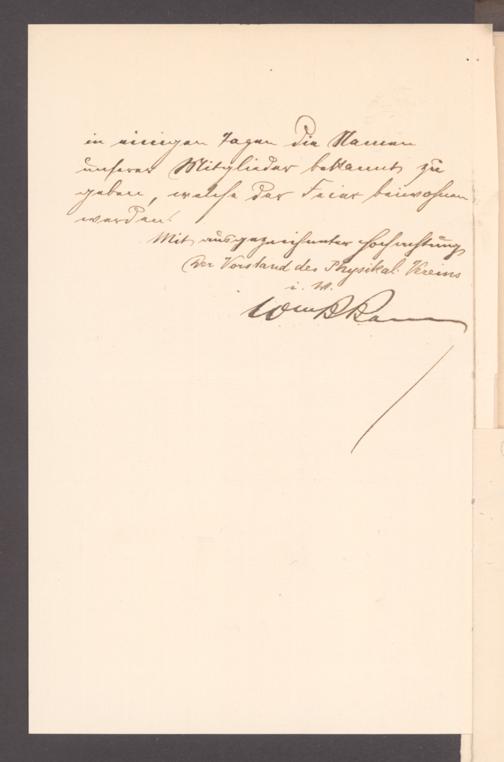 in einigen Tagen die Namen
unserer Mitglieder bekannt zu
geben, welche der Feier beiwohnen
werden.
Mit ausgezeichneter Hochachtung
Der Vorstand des Physikal. Vereins
i. A.